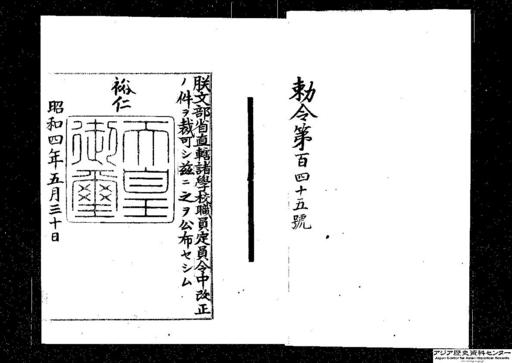 勅令第百四十五號
朕文部省直轄諸學校職員定員令中改正
ノ件ヲ裁可シ茲ニ之ヲ公布セシム
裕仁
天皇
御璽
昭和四年五月三十日
アジア歴史資料センター
Japan Center for Asian Historical Records